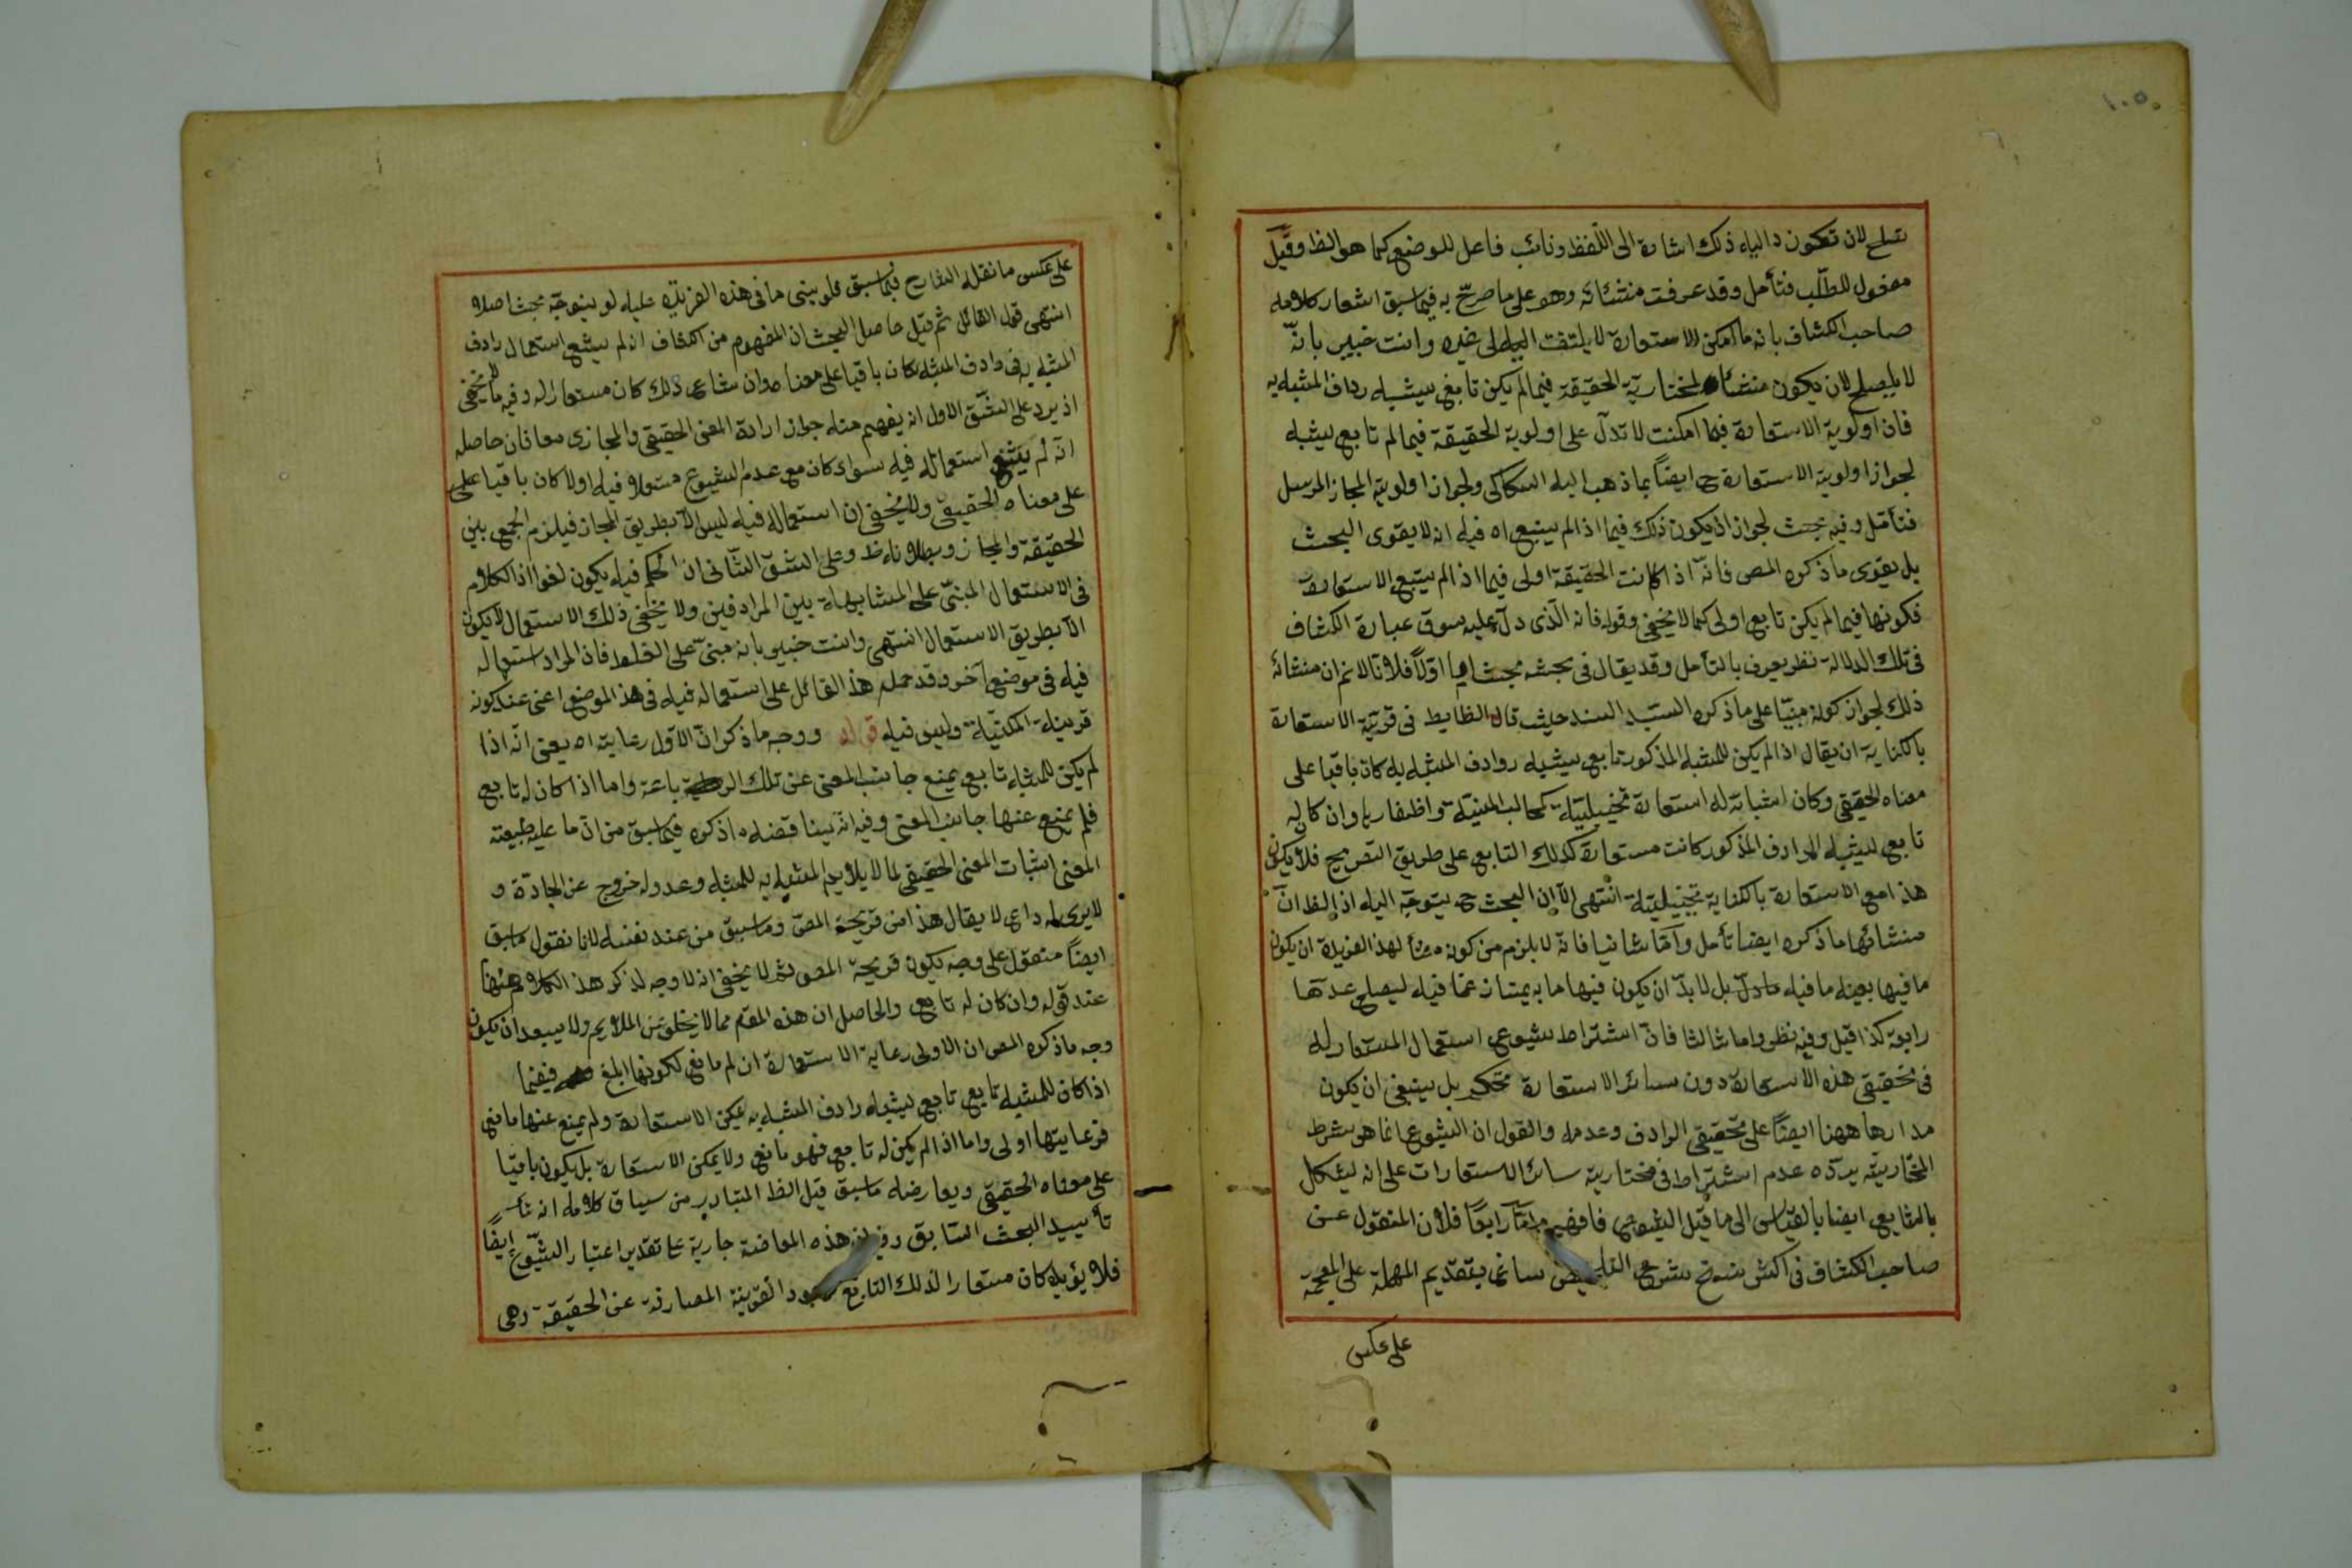 ١٠٥
تصلح لان تكون د الياء ذلك اشارة الى اللفظ ونائب فاعل للوضع كما هو الظ وقيل
مفعول للطلب فتأمل وقد عرفت منشائه وهو على ما صرح به فيما سبق اشعار كلامه
صاحب الكشاف بانه ما امكن الاستعارة لا يلتفت اليه الى غيره وانت خبير بانه
لا يصلح لان يكون منشأ لمختارية الحقيقة فيما لم يكن تابع يشبه رداف المشبه به
فان اولوية الاستعارة فيما امكنت لا تدل على اولوية الحقيقة فيما لم تابع يشبه
لجواز اولوية الاستعارة ح ايضاً بما ذهب اليه السكاكى ولجواز اولوية المجاز المرسل
فتأمل وفيه بحث لجواز اذ يكون ذلك فيما اذا لم يتبع اه فيه انه لا يقوى البحث
بل يقوى ما ذكره المص فانه اذا كانت الحقيقة اولى فيما اذا لم يتبع الاستعارة
فكونها فيما لم يكن تابع اولى كما لا يخفى وقوله فانه الذى دل عليه سوق عبارة الكشاف
فى تلك الدلالة نظر يعرف بالتأمل وقد يقال فى بحثه بحث اما اولاً فلانا لا نم ان منشائه
ذلك لجواز كونه مبنيا على ما ذكره السيد السند حيث قال الظابط فى قرينة الاستعارة
بالكناية ان يقال اذا لم يكن للمشبه المذكور تابع يشبه روادف المشبه به كان باقيا على
معناه الحقيقى وكان اثباته له استعارة تخييلية كمخالب المنية واظفارها وان كان له
تابع يشبه الرادف المذكور كانت مستعارة كذلك التابع على طريق التصريح فلا يكون
هذا مع الاستعارة بالكناية تخييلية انتهى الا ان البحث ح يتوجه اليه اذ الظ ان
منشائها ما ذكره ايضا تأمل واما ثانيا فانه لا يلزم من كونه منشأ لهذا الفريدة ان يكون
ما فيها بعينه ما فيه بل لا بد ان يكون فيها ما به يمتاز عما فيه ليصلح عدتها
رابعة كذا قيل وفيه نظر واما ثالثا فان اشتراط شيوع استعمال المستعار له
فى تحقيق هذه الاستعارة دون سائر الاستعارة تحكم بل ينبغى ان يكون
مدارها ههنا ايضاً على تحقيق الرادف وعدمه والقول ان الشيوع انما هو شرط
المختارية يرده عدم اشتراط فى مختارية سائر الاستعارات على انه يشكل
بالتابع ايضا بالقياس الى ما قبل الشيوع فافهم واما رابعاً فلان المنقول عن
صاحب الكشاف فى اكثر نسخ شرح التلخيص بتقديم المهملة على المعجمة
على عكس
على عكس ما نقله الشارح فيما سبق فلو بينى ما فى هذه الفريدة عليه لو يتوجه بحث اصلا
انتهى قول القائل ثم قيل حاصل البحث ان المفهوم من الكشاف انه لم يشع استعمال رادف
المشبه به فى رادف المشبه كان باقيا على معناه وان شاع ذلك كان مستعارا له وفيه ما لا يخفى
اذ يرد على الشق الاول انه يفهم منه جواز ارادة المعنى الحقيقى والمجازى معا فان حاصله
انه لم يشع استعماله فيه سواء كان مع عدم الشيوع مستعملا فيه اولا كان باقيا على
على معناه الحقيقى ولا يخفى ان استعماله فيه ليس الا بطريق المجاز فيلزم الجمع بين
الحقيقة والمجاز وبطلانه ظ وعلى الشق الثانى ان الحكم فيه يكون لغوا اذ الكلام
فى الاستعمال المبنى على المشابهة بين المرادفين ولا يخفى ذلك الاستعمال لا يكون
الا بطريق الاستعمال انتهى وانت خبير بانه مبنى على الغلط فاذ المراد استعماله
فيه فى موضع آخر وقد حمله هذا القائل على استعماله فيه فى هذا الموضع اعنى عند كونه
قرينة المكنية وليس فيه قوله ووجه ما ذكر ان الاول رعايته اه يعنى انه اذا
لم يكن للمشبه تابع يمنع جانب المعنى عن تلك الرعاية واما اذا كان له تابع
فلم يمنع عنها جانب المعنى وفيه انه يناقضه ما ذكره فيما سبق من ان ما عليه طبيعته
المعنى اثبات المعنى الحقيقى لما لا يلايم المشبه به للمشبه وعدوله خروج عن الجادة و
لا يرى له داع لا يقال هذا من قريحة المص وما سبق من عند نفسه لانا نقول ما سبق
ايضاً منقول على وجه يكون قريحة المص ثم لا يخفى انه لا وجه لذكر هذا الكلام ههنا
عند قوله وان كان له تابع والحاصل ان هذه المقم مما لا يخلو عن الملايم ولا يبعد ان يكون
وجه ما ذكره المص ان الاولى رعاية الاستعارة ان لم مانع لكونها ابلغ فيما
اذا كان للمشبه تابع تابع يشبه رادف المشبه به يمكن الاستعارة ولم يمنع عنها مانع
فرعايتها اولى واما اذا لم يكن له تابع فهو مانع ولا يمكن الاستعارة بل يكون باقيا
على معناه الحقيقى ويعارضه ما سبق قيل الظ المتبادر من سياق كلامه انه
تأييد البحث السابق هذه المعارضة جارية على تقدير اعتبار الشيوع ايضاً
فلا يؤيد كان مستعارا لذلك التابع القرينة الصارفة عن الحقيقة وهى